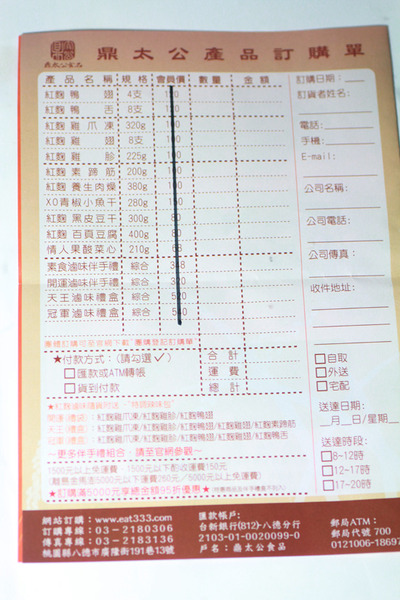 鼎太公食品
鼎太公產品訂購單
產品名稱 規格 會員價 數量 金額
紅麴鴨翅 4支
紅麴鴨舌 8支
紅麴雞爪凍 320g
紅麴雞翅 8支
紅麴雞胗 225g
紅麴素蹄筋 200g
紅麴養生肉燥 380g
XO青椒小魚干 280g
紅麴黑皮豆干 300g
紅麴百頁豆腐 400g
情人果酸菜心 210g
素食滷味伴手禮 綜合
開運滷味伴手禮 綜合
天王滷味禮盒 綜合
冠軍滷味禮盒 綜合
★付款方式:(請勾選✓)
□匯款或ATM轉帳
□貨到付款
合計
運費
總計
訂購日期:
訂貨者姓名:
電話:
手機:
E-mail:
公司名稱:
公司電話:
公司傳真:
收件地址:
□自取
□外送
□宅配
送達日期:
__月__日/星期
送達時段:
□8-12時
□12-17時
□17-20時
開運(禮袋):紅麴雞爪凍/紅麴雞胗/紅麴鴨翅
天王(禮盒):紅麴雞爪凍/紅麴雞胗/紅麴鴨翅/紅麴素蹄筋
冠軍(禮盒):紅麴雞爪凍/紅麴雞胗/紅麴鴨翅/紅麴鴨舌
~更多伴手禮組合,請至官網參觀~
1500元以上免運費、1500元以下酌收運費150元
★訂購滿5000元享總金額95折優惠★
網站訂購:www.eat333.com
訂購專線:03-2180306
傳真專線:03-2183136
桃園縣八德市廣隆街191巷13號
匯款帳戶:
台新銀行(812)-八德分行
2103-01-0020099-0
戶名:鼎太公食品
郵局ATM:
郵局代號 700
0121006-18697